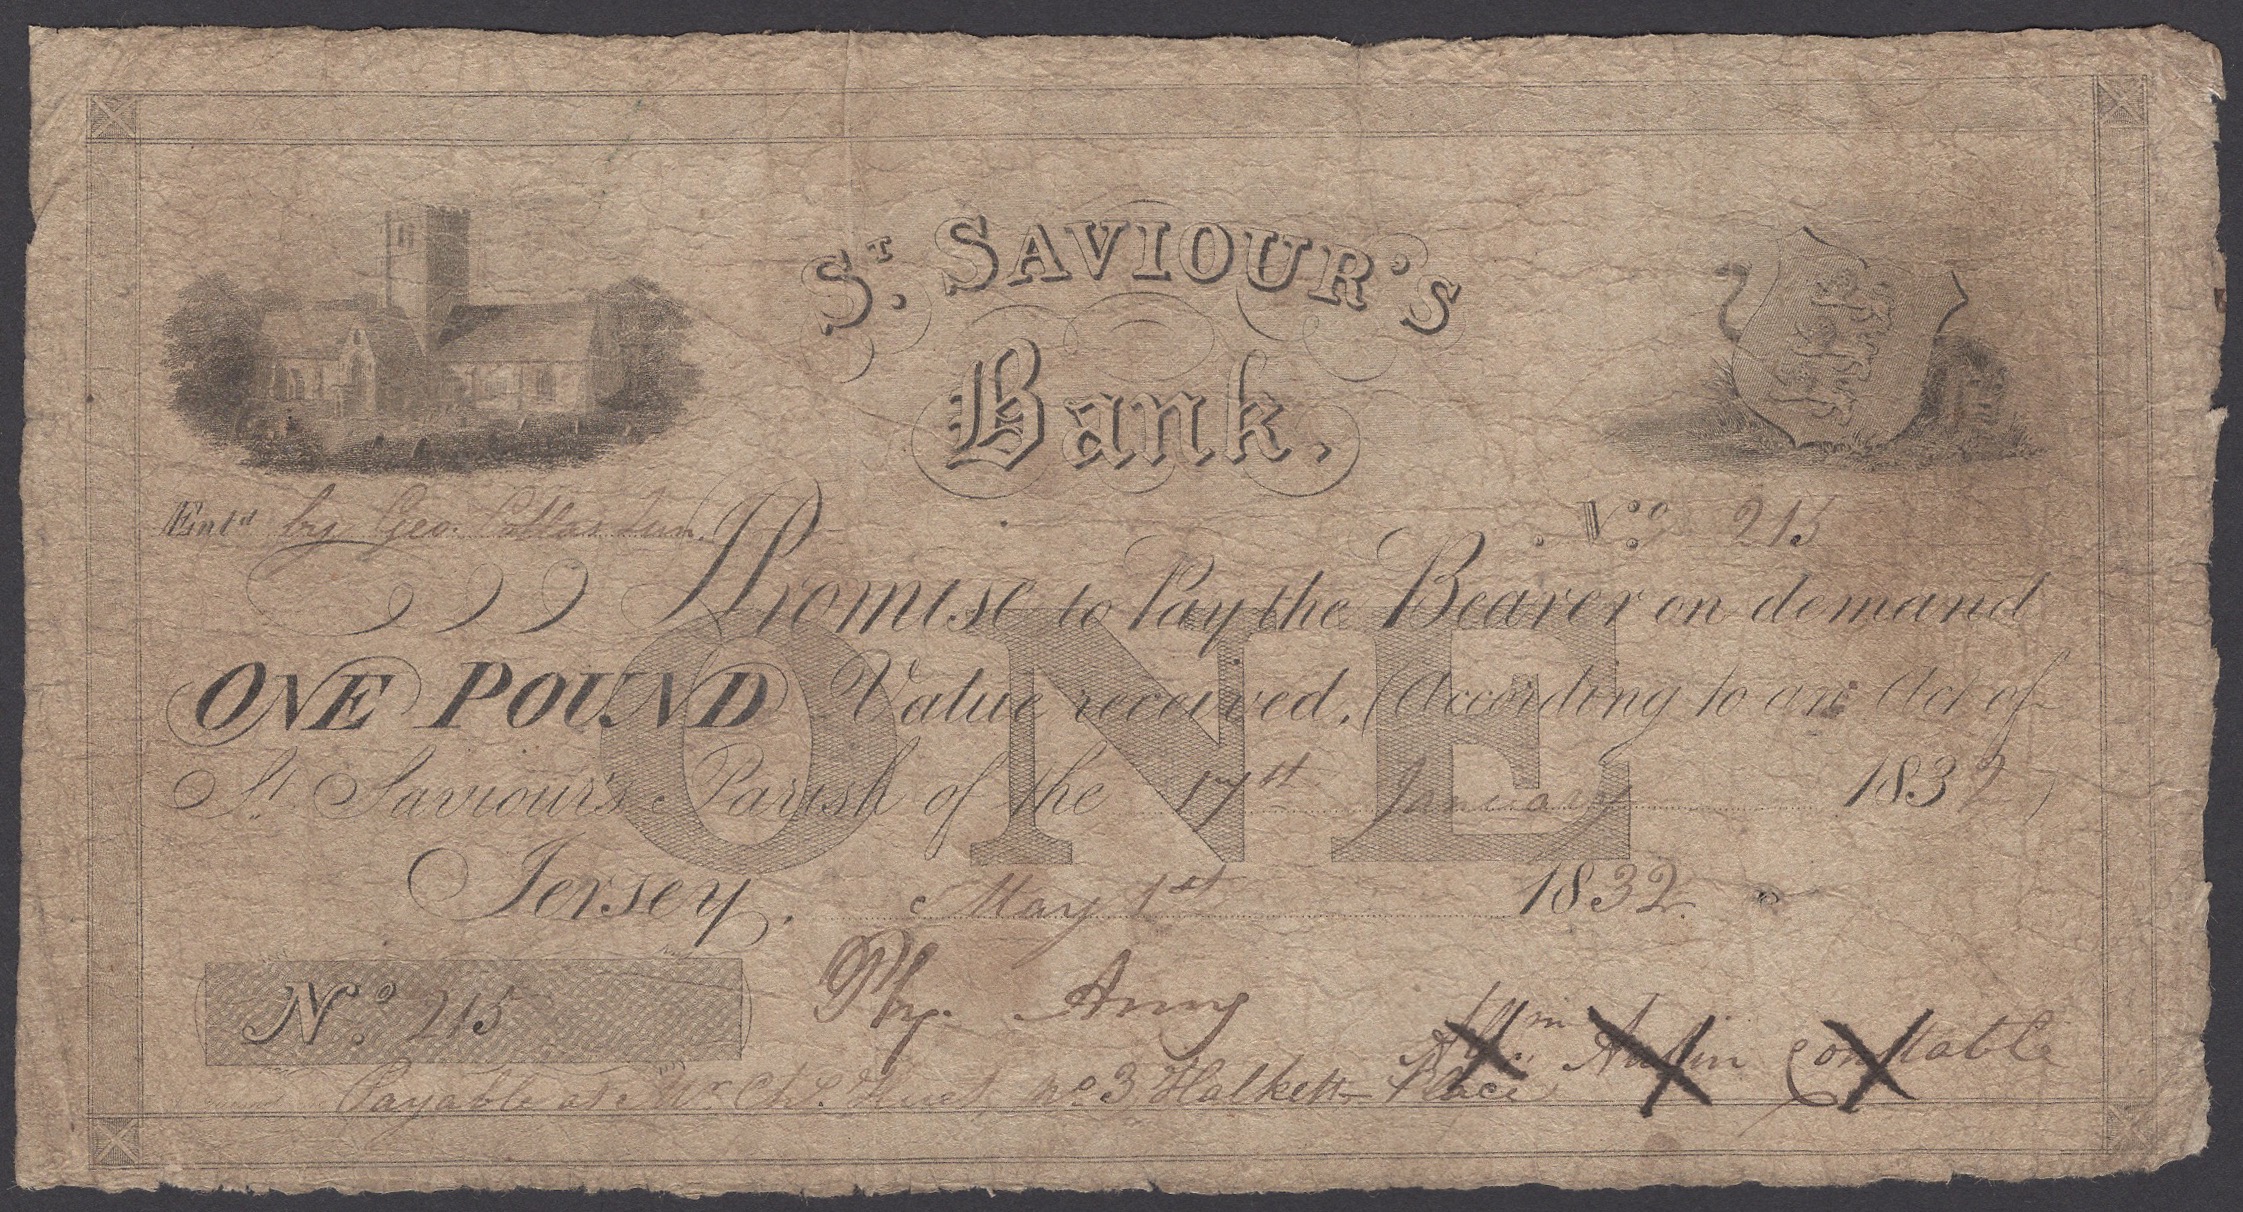 St. SAVIOUR'S
Bank.
Entd. by Geo. Collas Jun.
No. 215
Promise to Pay the Bearer on demand
ONE POUND Value received, (According to an Act of
St. Saviour's Parish of the 17th January 1832)
ONE
Jersey, May 1st 1832.
No. 215
Php. Amy
Wm Constable
Payable at Mr. Chs. Huet, no 3, Halkett Place